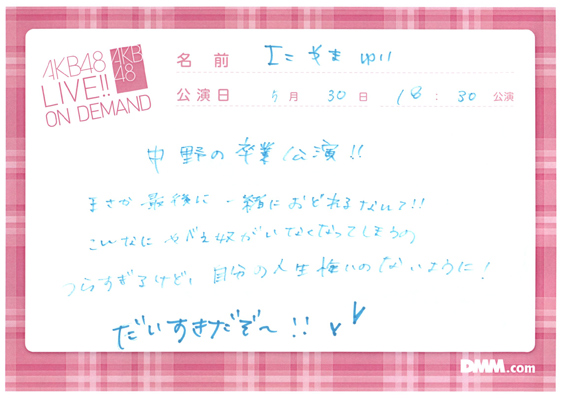 AKB48
LIVE!!
ON DEMAND
AKB
48
名前 エこ やま ゆい
公演日 5月30日 18:30公演
中野の卒業公演!!
まさか最後に一緒におどれるなんて!!
こんなにやべえ奴がいなくなってしまうの
つらすぎるけど、自分の人生悔いのないように!
だいすきだぞ〜!!
DMM.com